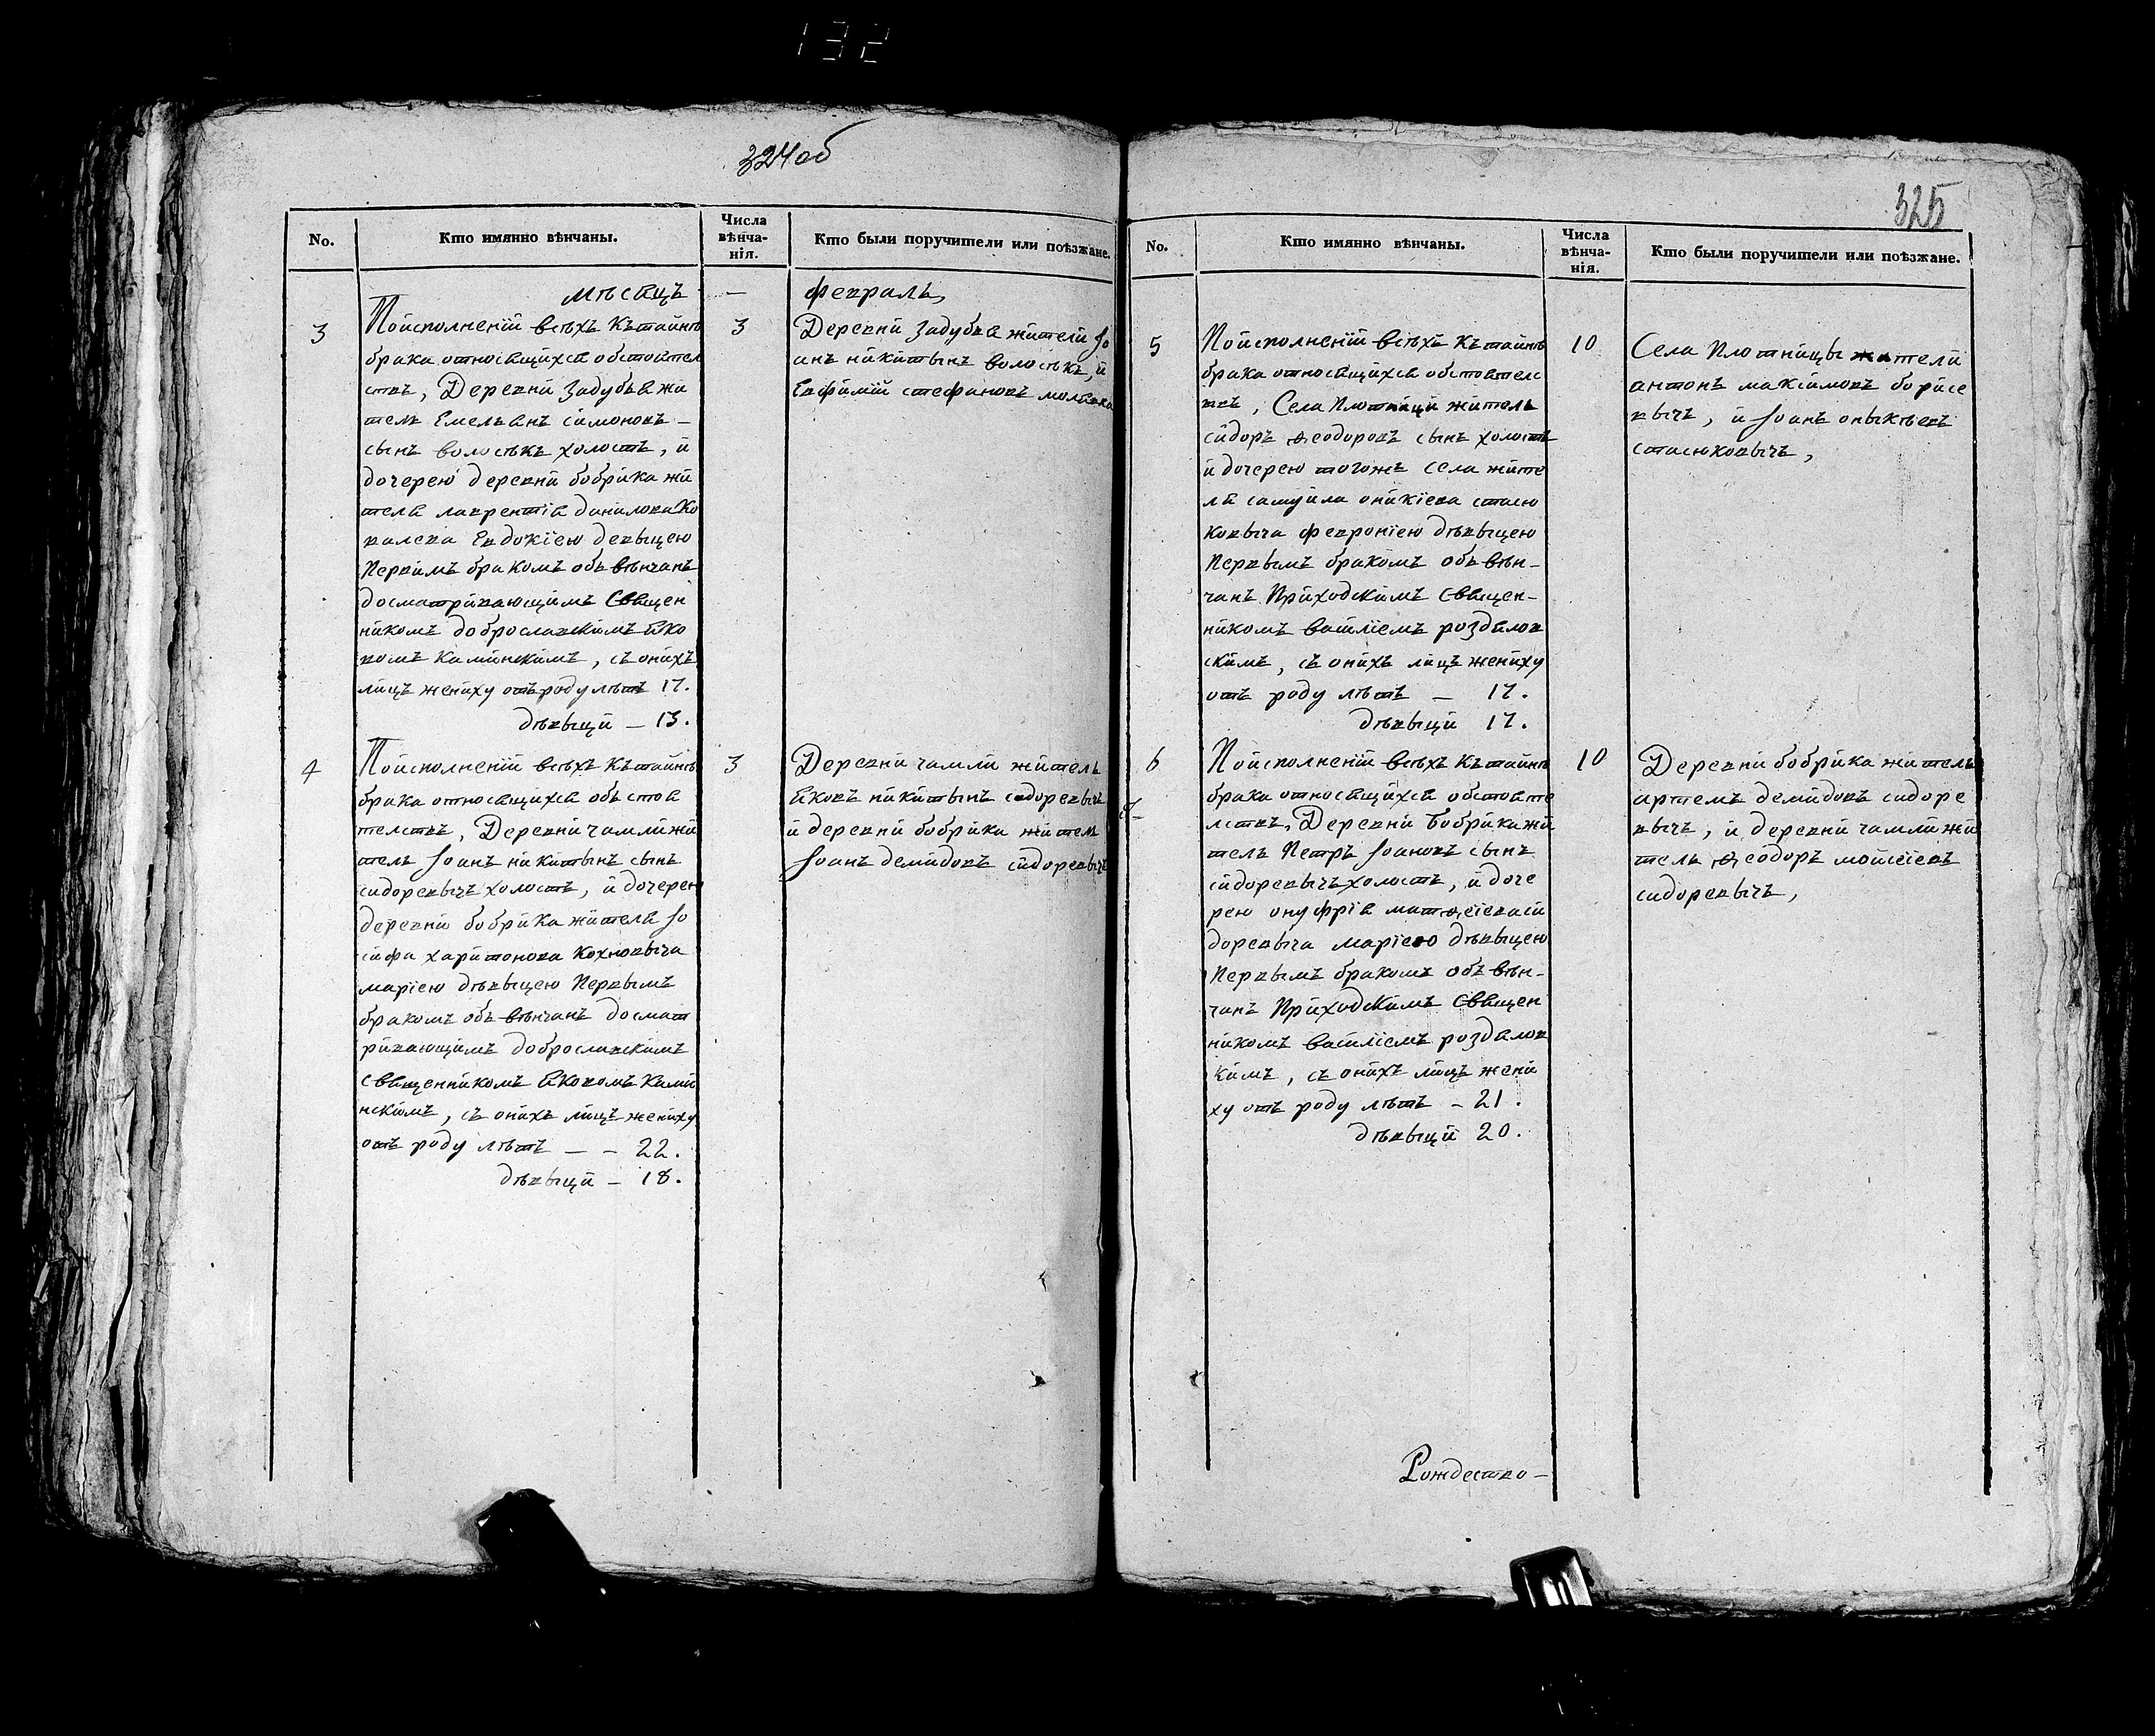 132
324об
No.
Кто имянно вѣнчаны.
Числа
вѣнча-
нія.
Кто были поручители или поѣзжане.
мѣсяцъ — февраль,
3
Поисполненіи всѣхъ Кътайнѣ
брака относящихся обстоятел
ствъ, Деревни Задубья жи
тель Емельянъ симоновъ —
сынъ волосѣкъ холостъ, и
дочерею деревни бобрика жи
теля лаврентія данилова Ко
валева Евдокіею девыцею
Первимъ бракомъ объ вѣнчанъ
досматривающимъ Священ
никомъ доброславскимъ яко
вомъ каминскимъ, съ онихъ
лицъ жениху отъ роду лѣтъ 17.
дѣвыци — 13.
3
Деревни Задубья жители Іо
анъ никитынъ волосѣкъ, и
Евфимій стефановъ
4
Поисполненіи всѣхъ Кътайнѣ
брака относящихся объ стоя
телствъ, Деревни чамли жи
тель Іоанъ никитынъ сынъ
сидоревычъ холостъ, и дочерею
деревни бобрика жителя Іо
сифа харитонова Кохновыча
маріею дѣвыцею Первымъ
бракомъ объ вѣнчанъ досмат
ривающимъ доброславскимъ
священникомъ яковомъ Ками
нскимъ, съ онихъ лицъ жениху
отъ роду лѣтъ — — 22.
дѣвыци — 18.
3
Деревни чамли житель
яковъ никитынъ сидоревычъ
и деревни бобрика житель
Іоанъ демидовъ сидоревычъ
325
No.
Кто имянно вѣнчаны.
Числа
вѣнча-
нія.
Кто были поручители или поѣзжане.
5
Поисполненіи всѣхъ Къ тайнѣ
брака относящихся обстоятелс
твъ, Села Плотници житель
сидоръ ѳеодоровъ сынъ холостъ
и дочерею тогожъ села жите
ля самуила оникіева стасю
ковыча февроніею дѣвыцею
Первымъ бракомъ объ вѣн-
чанъ Приходскимъ Священ-
никомъ василіемъ роздялов
скимъ, съ онихъ лицъ жениху
отъ роду лѣтъ — 17.
дѣвыци 17.
10
Села Плотницы жители
антонъ максимовъ борисе
вычъ, и Іоанъ оныкѣевъ
стасюковычъ,
6
Поисполненіи всѣхъ Къ тайнѣ
брака относящихся обстояте
лствъ, Деревни Бобрика жи
тель Петръ Іоановъ сынъ
сидоревычъ холостъ, и доче
рею онуфрія матѳеіева си
доревыча маріею дѣвыцею
Первымъ бракомъ объ вѣн-
чанъ Приходскимъ Священ
никомъ василіемъ роздялов
кимъ, съ онихъ лицъ жени
ху отъ роду лѣтъ — 21.
дѣвыци 20.
10
Деревни бобрика житель
артемъ демидовъ сидоре
вычъ, и деревни чамли жи
тель ѳеодоръ мойсіевъ
сидоревычъ,
Рождество —